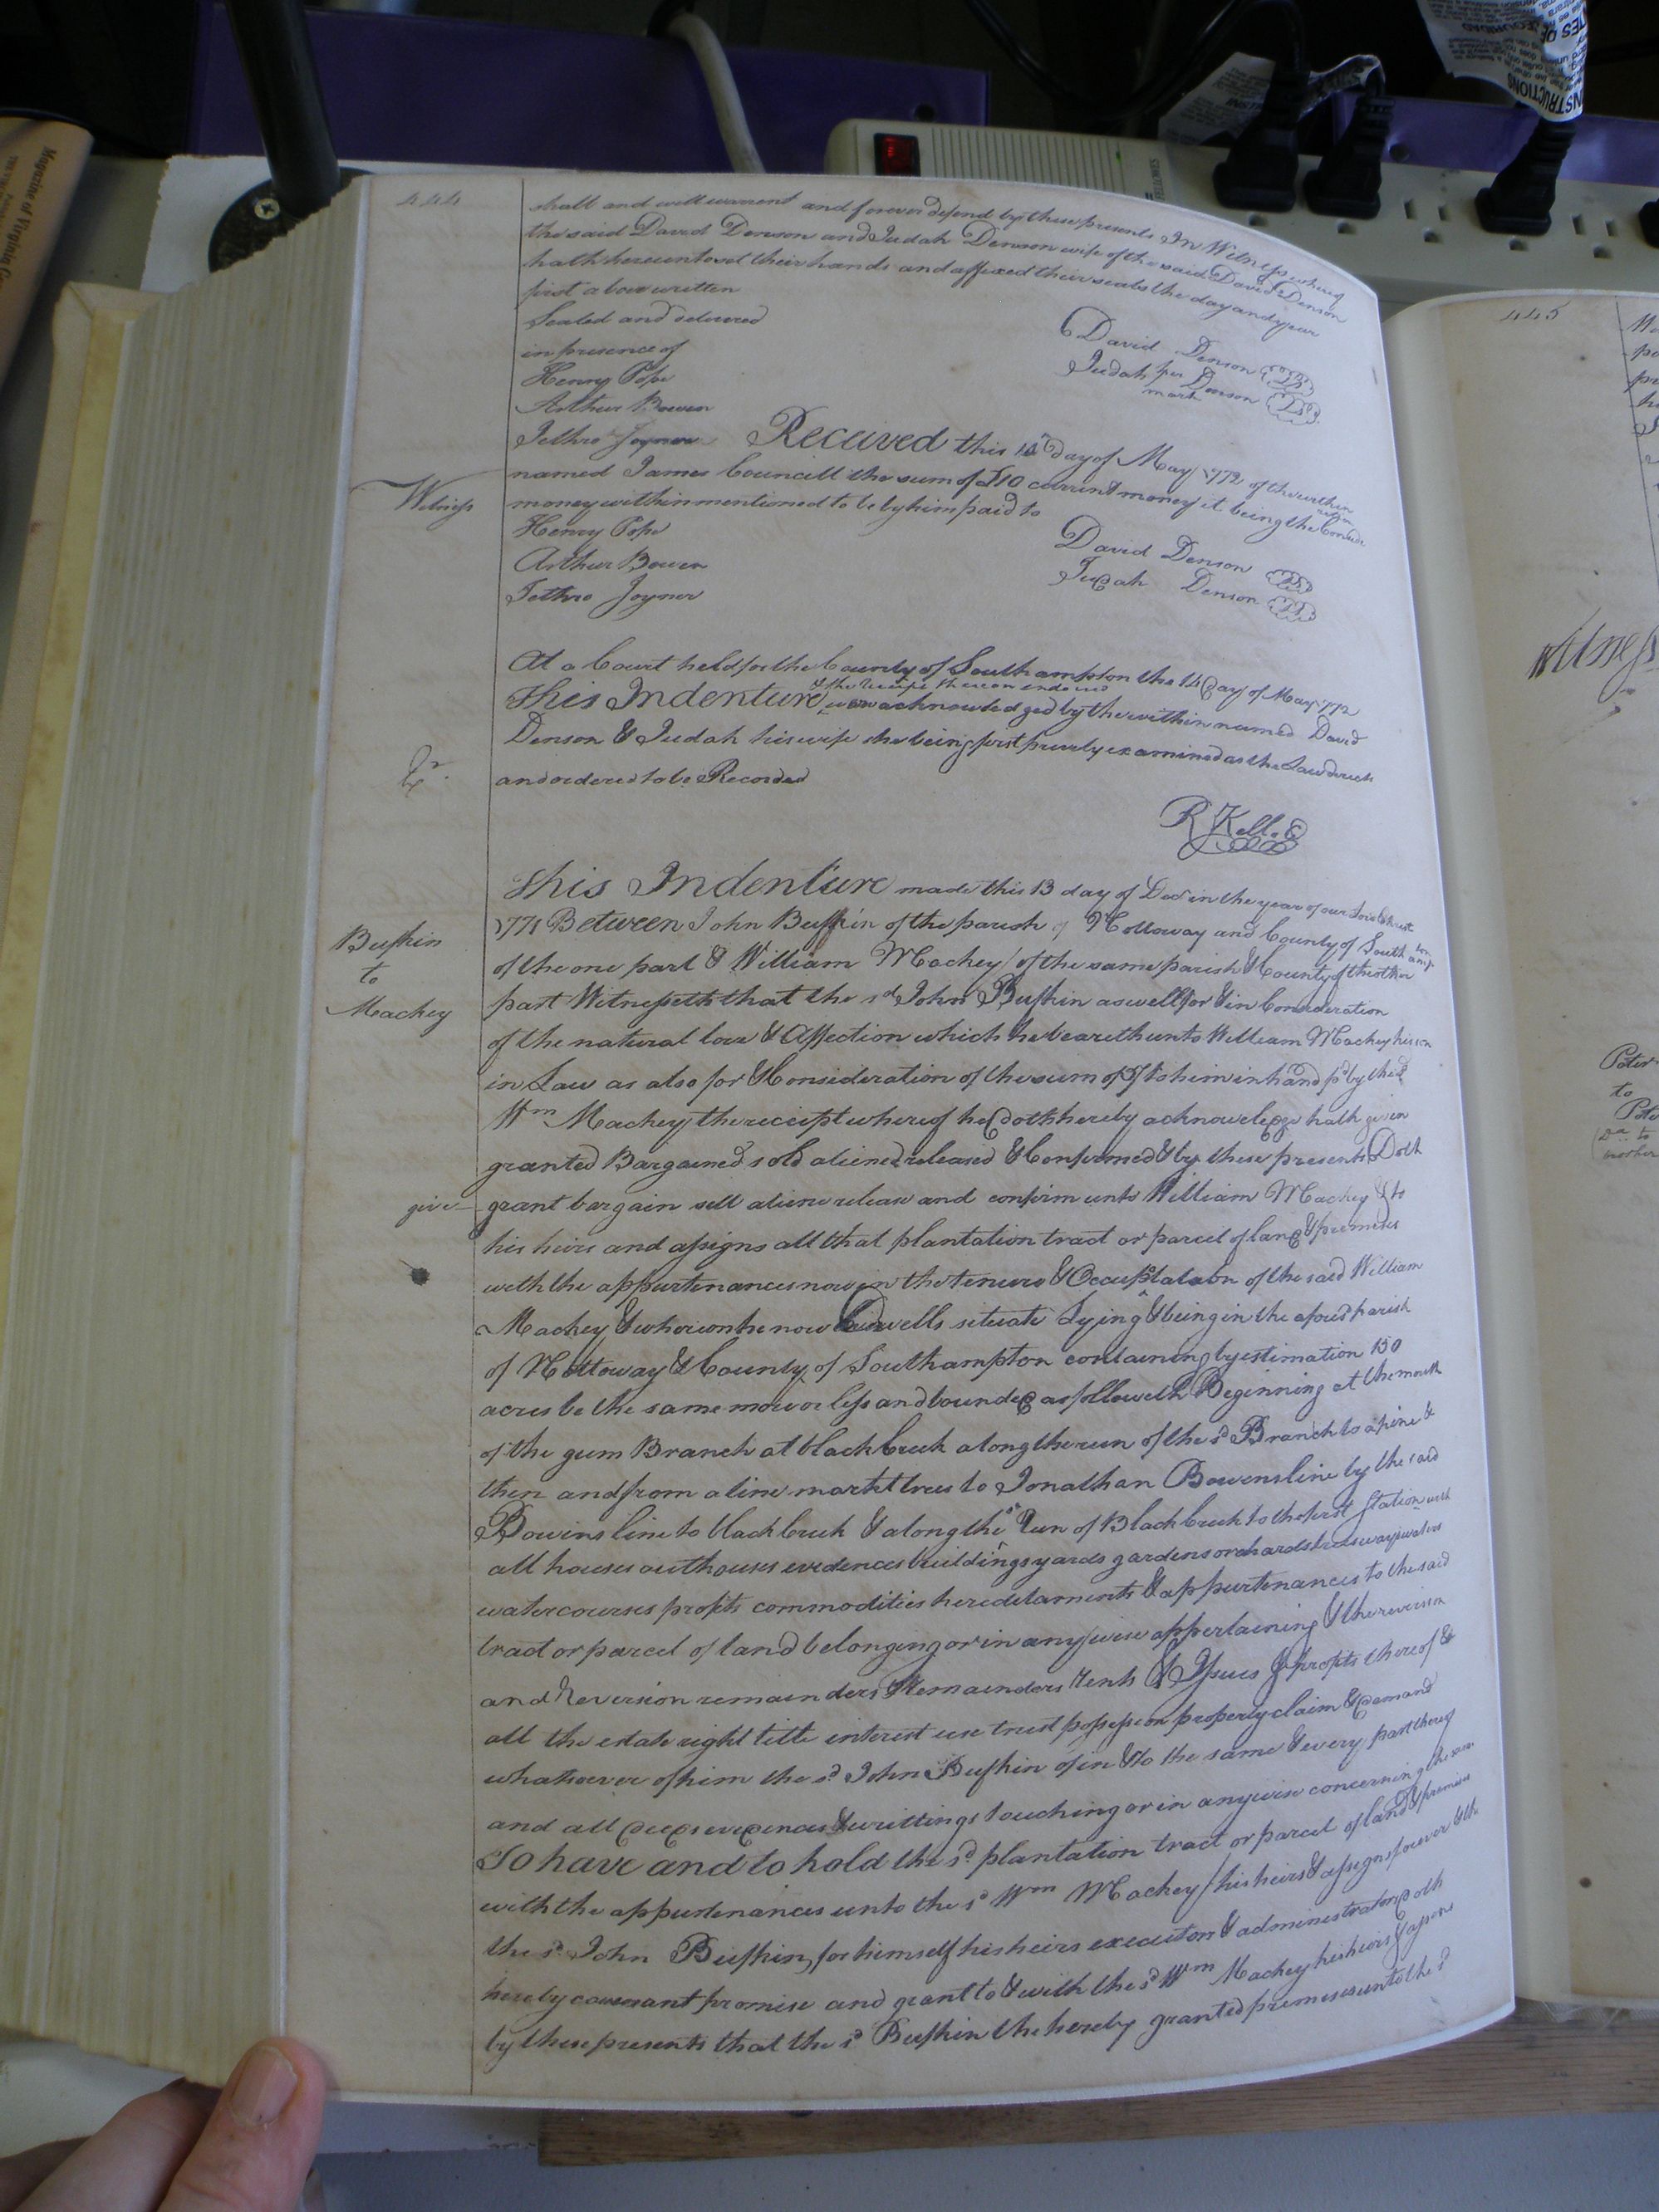 444
shall and will warrent and forever defend by these presents In Witness whereof
the said David Denson and Judah Denson wife of the said David Denson
hath hereunto set their hands and affixed their seals the day and year
first above written
Sealed and delivered
in presence of
David Denson
Henry Pope
Judah her Denson
mark
Arthur Bowen
Jethro Joyner Received this 14th day of May 1772 of the within
named James Councill the sum of £10 current money it being the Conside
ration
Witness
money within mentioned to be by him paid to
Henry Pope
David Denson
Arthur Bowen
Judah Denson
Jethro Joyner
At a Court held for the County of Southampton the 14 Day of May 1772
This Indenture & the receipt thereon endorsed was acknowledged by the within named David
Denson & Judah his wife she being first privily examined as the Law directs
Ex.
and ordered to be Recorded
R Kello
This Indenture made this 13 day of Decr in the year of our Lord Christ
1771 Between John Bufkin of the parish of Nottoway and County of Southampton
Bufkin
to
Mackey
of the one part & William Mackey of the same parish & County of the other
part Witnesseth that the sd John Bufkin as well for & in Consideration
of the natural love & Affection which he beareth unto William Mackey his son
in Law as also for & Consideration of the sum of to him in hand pd by the sd
Wm Mackey the receipt whereof he doth hereby acknowledge hath given
granted Bargained sold aliened released & Confirmed & by these presents Doth
give
grant bargain sell aliene release and confirm unto William Mackey & to
his heirs and assigns all that plantation tract or parcel of land & premises
with the appurtenances now in the tenure & Occupation of the said William
Mackey & whereon he now dwells situate Lying & being in the aforesd parish
of Nottoway & County of Southampton containing by estimation 150
acres be the same more or less and bounded as followeth Beginning at the mouth
of the gum Branch at black Creek along the run of the sd Branch to a pine &
then and from a line markt trees to Jonathan Bowens line by the said
Bowins line to black Creek & along the Run of Black Creek to the first station with
all houses outhouses evidences buildings yards gardens orchards trees ways waters
watercourses profits commodities heredetaments & appurtenances to the said
tract or parcel of land belonging or in any wise appertaining & the reversion
and Reversion remainders & Remainders rents & Issues & profits thereof &
all the estate right title interest use trust possession property claim & demand
whatsoever of him the sd John Bufkin of in & to the same & every part thereof
and all deeds evidences & writtings touching or in anywise concerning the same
To have and to hold the sd plantation tract or parcel of land & premises
with the appurtenances unto the sd Wm Mackey his heirs & assigns forever & the
the sd John Bufkin for himself his heirs executors & administrators doth
hereby covenant promise and grant to & with the sd Wm Mackey his heirs & assigns
by these presents that the sd Bufkin the hereby granted premises unto the sd
445
Witness
to
Magazine of Virginia
INSTRUCTIONS
FELLOWES